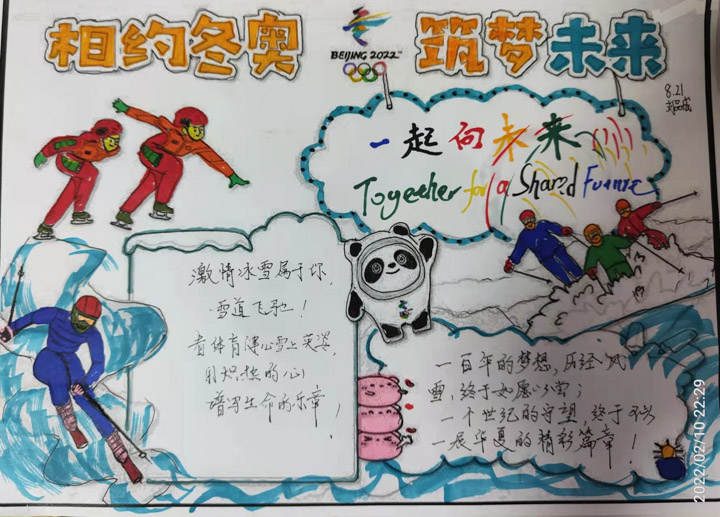 相约冬奥
BEIJING 2022™
筑梦未来
8.21
一起向未来
Together for a Shared Future
激情冰雪属于你,
雪道飞驰!
看体育健心雪上英姿
用炽热的心
谱写生命的乐章!
一百年的梦想,历经风
雪,终于如愿以偿;
一个世纪的守望,终于
一展华夏的精彩篇章!
2022/02/10 22:29